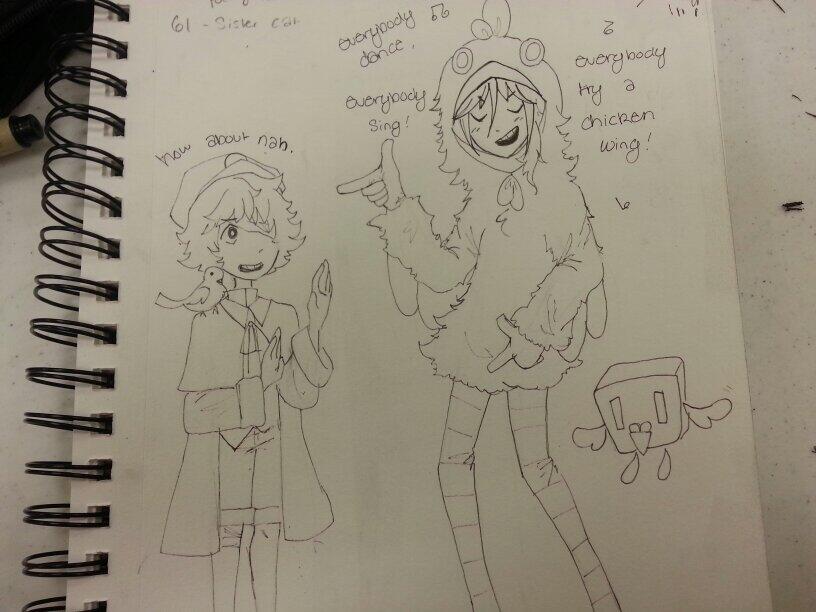 61 - Sister cat
everybody
dance,
everybody
Sing!
everybody
try a
chicken
wing!
how about nah.